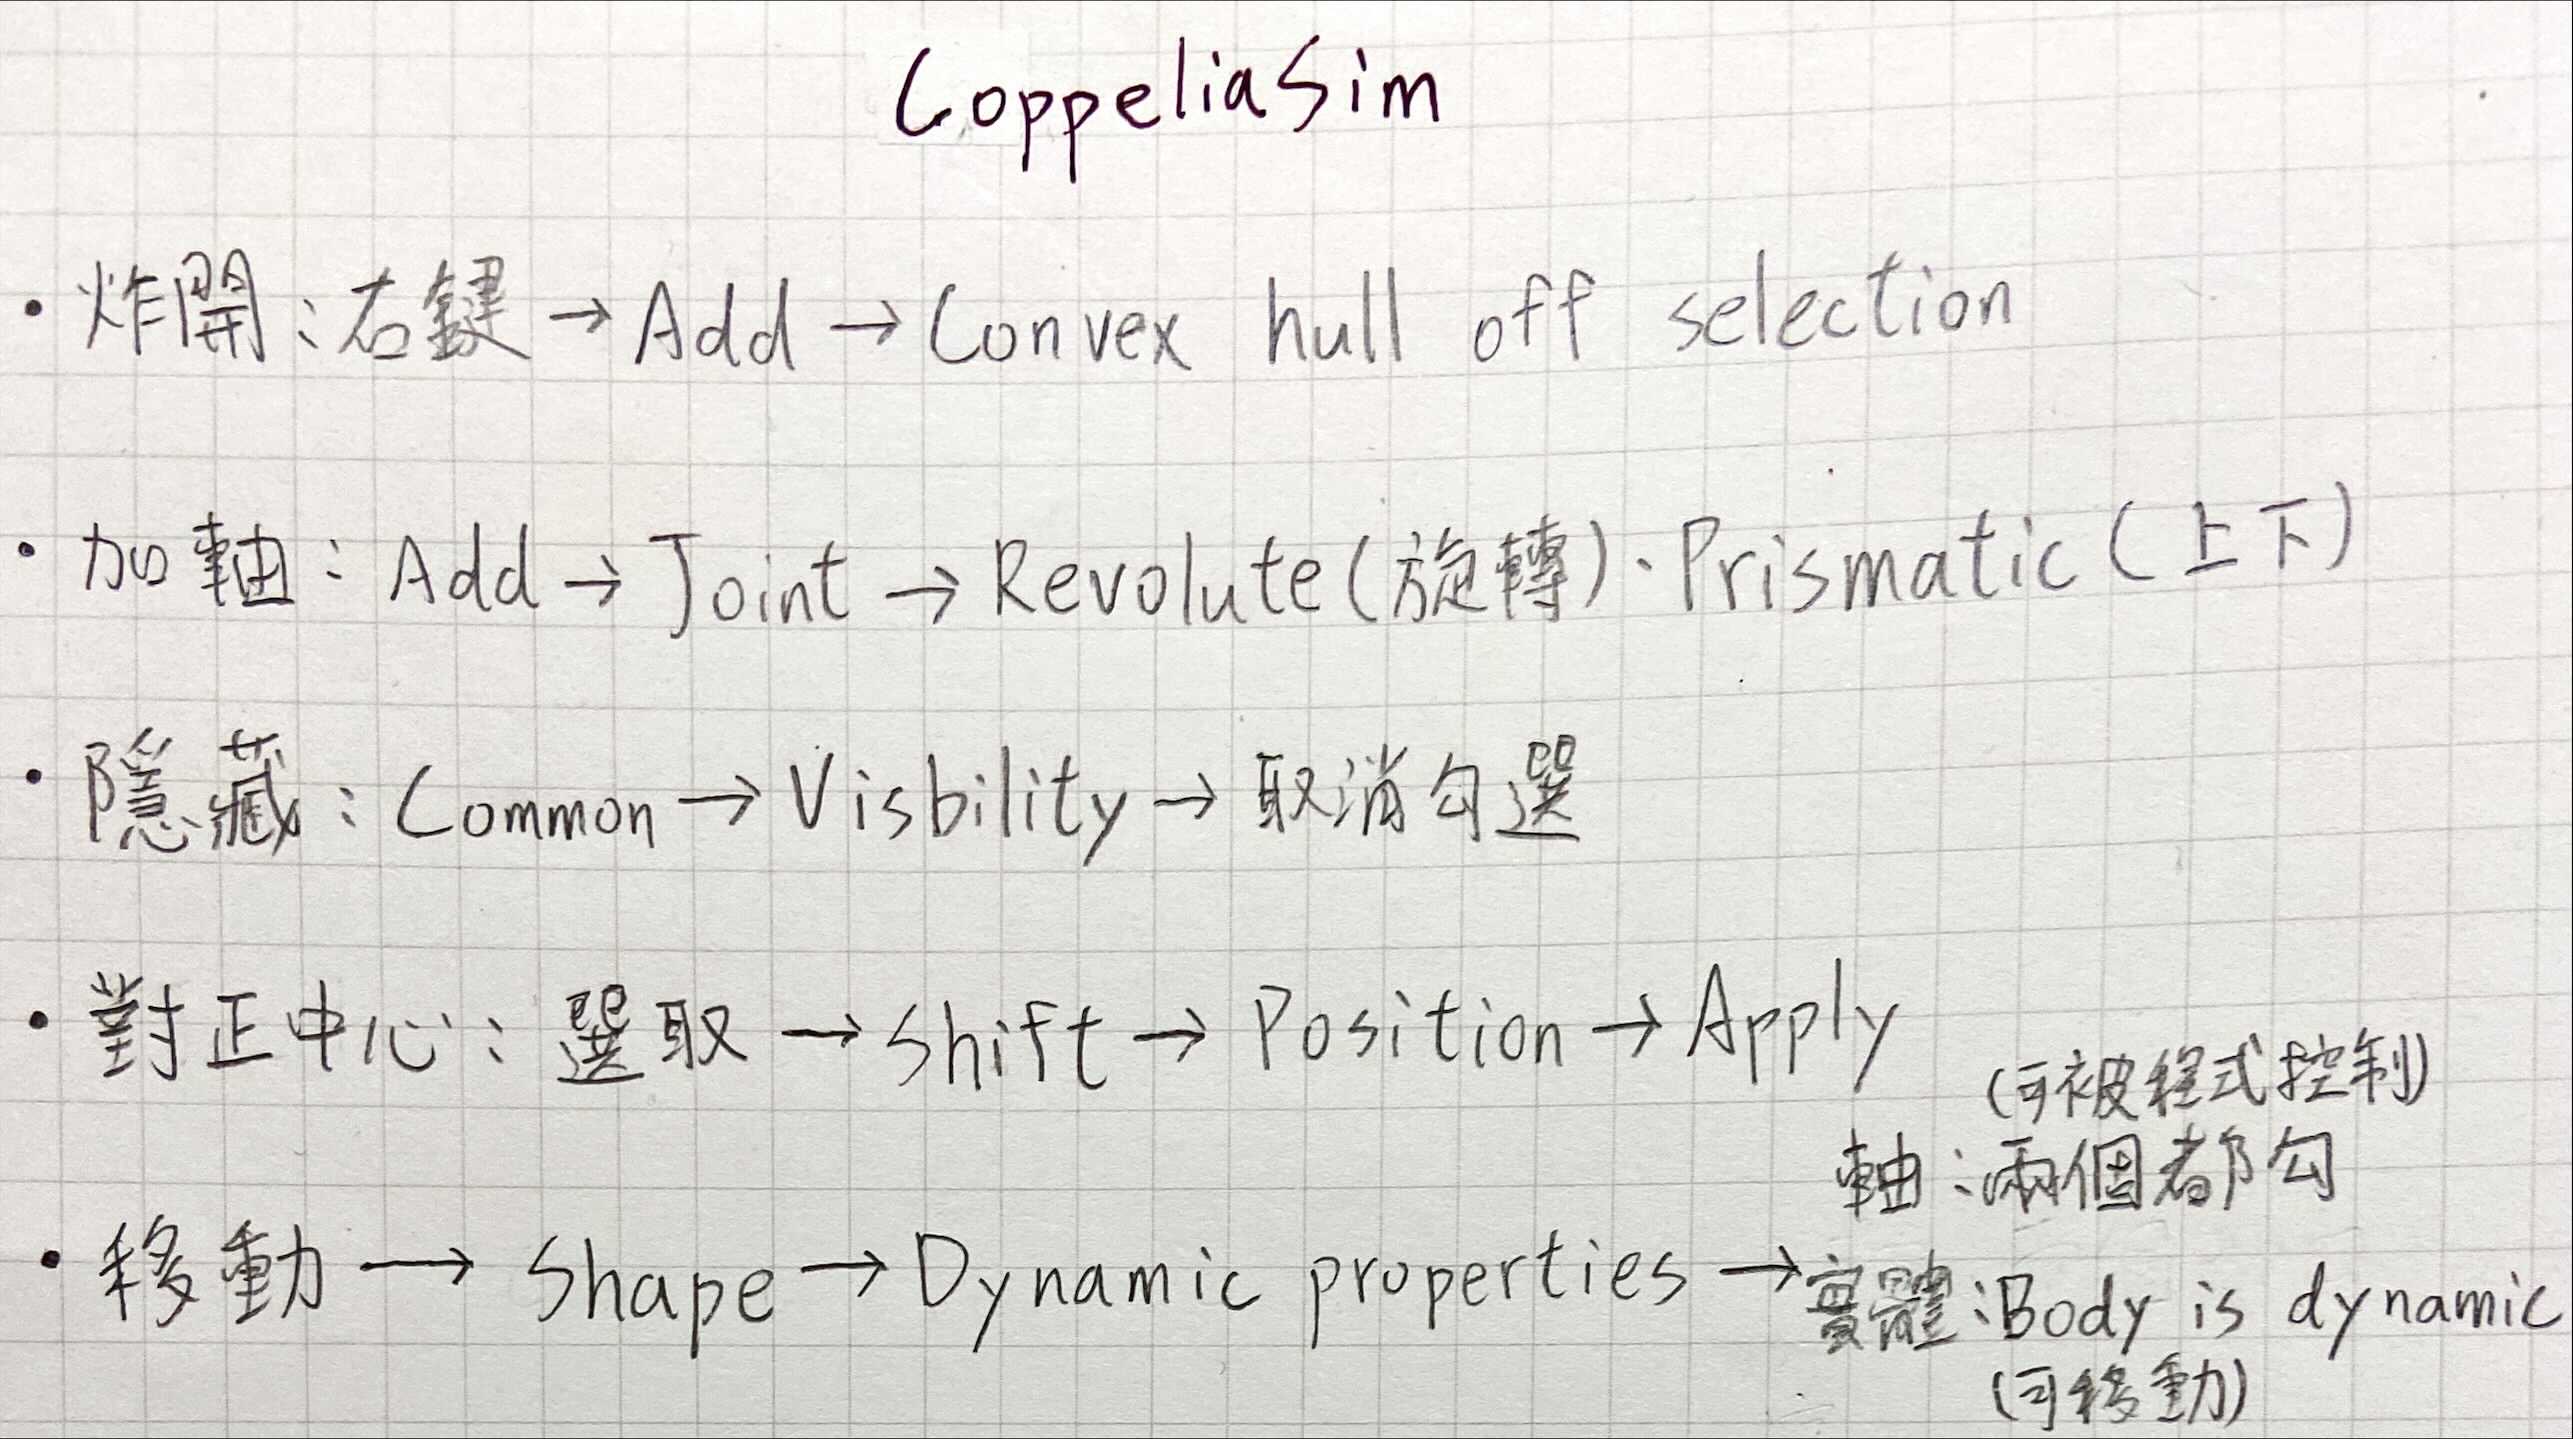 CoppeliaSim
• 炸開:右鍵→Add→Convex hull off selection
• 加軸:Add→Joint→Revolute(旋轉)、Prismatic(上下)
• 隱藏:Common→Visbility→取消勾選
• 對正中心:選取→Shift→Position→Apply
(可被程式控制)
軸:兩個都勾
• 移動→Shape→Dynamic properties→實體:Body is dynamic
(可移動)